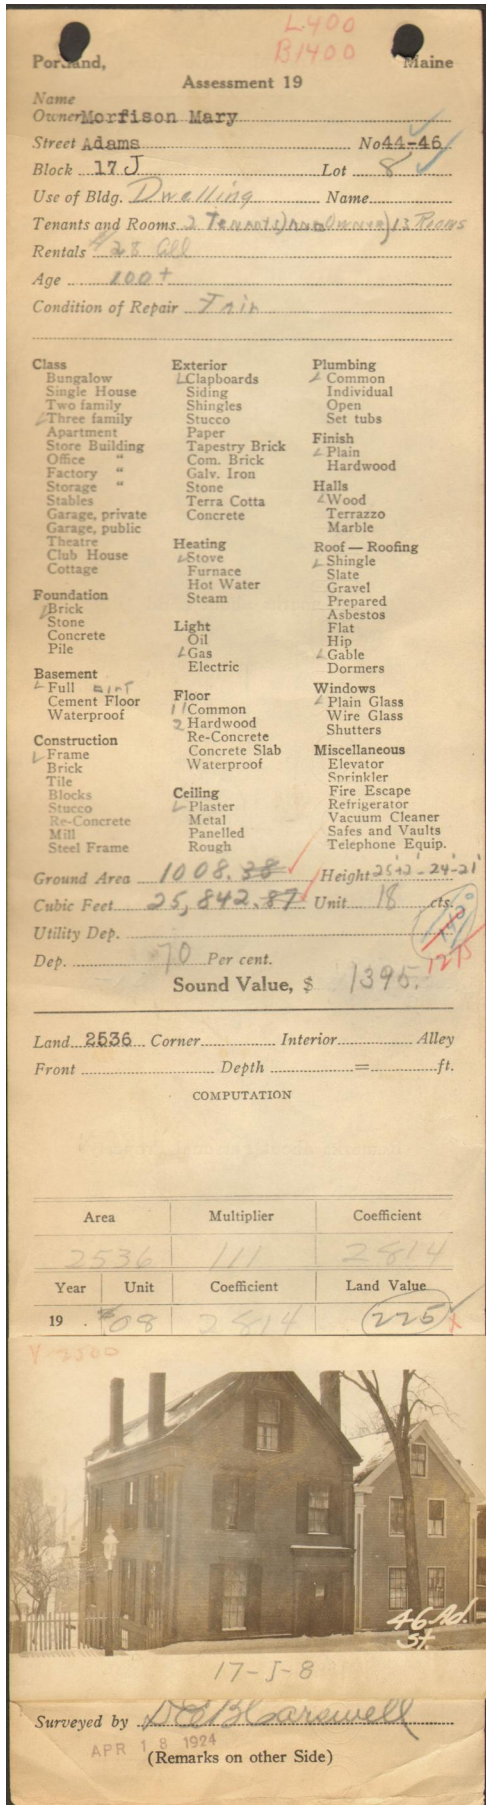 L.400
B1400
Portland, Maine
Assessment 19
Name
Owner Morfison Mary
Street Adams No 44-46
Block 17 J Lot 8
Use of Bldg. Dwelling Name
Tenants and Rooms 2 Tenants) and Owner) 13 Rooms
Rentals $28 all
Age 100+
Condition of Repair Fair
Class
Bungalow
Single House
Two family
Three family
Apartment
Store Building
Office "
Factory "
Storage "
Stables
Garage, private
Garage, public
Theatre
Club House
Cottage
Foundation
Brick
Stone
Concrete
Pile
Basement
Full dirt
Cement Floor
Waterproof
Construction
Frame
Brick
Tile
Blocks
Stucco
Re-Concrete
Mill
Steel Frame
Exterior
Clapboards
Siding
Shingles
Stucco
Paper
Tapestry Brick
Com. Brick
Galv. Iron
Stone
Terra Cotta
Concrete
Heating
Stove
Furnace
Hot Water
Steam
Light
Oil
Gas
Electric
Floor
11 Common
2 Hardwood
Re-Concrete
Concrete Slab
Waterproof
Ceiling
Plaster
Metal
Panelled
Rough
Plumbing
Common
Individual
Open
Set tubs
Finish
Plain
Hardwood
Halls
Wood
Terrazzo
Marble
Roof — Roofing
Shingle
Slate
Gravel
Prepared
Asbestos
Flat
Hip
Gable
Dormers
Windows
Plain Glass
Wire Glass
Shutters
Miscellaneous
Elevator
Sprinkler
Fire Escape
Refrigerator
Vacuum Cleaner
Safes and Vaults
Telephone Equip.
Ground Area 1008.38 Height
Cubic Feet 25,842.87 Unit 18 cts.
Utility Dep.
Dep. 70 Per cent. 1275
Sound Value, $ 1395.
Land 2536 Corner Interior Alley
Front Depth = ft.
COMPUTATION
Area Multiplier Coefficient
2536 111 2814
Year Unit Coefficient Land Value
19 . $08 2814 225
V-2500
46 Ad.
St.
17-J-8
Surveyed by Carswell
APR 18 1924
(Remarks on other Side)